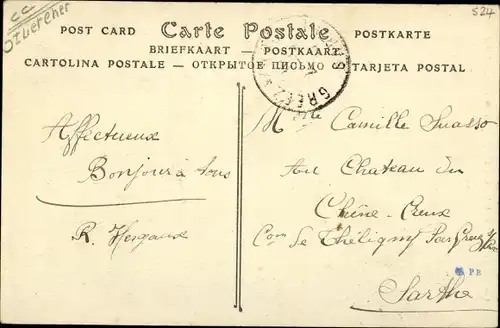 CC
524
POST CARD Carte Postale POSTKARTE
BRIEFKAART — POSTKAART
CARTOLINA POSTALE — ОТКРЫТОЕ ПИСЬМО — TARJETA POSTAL
Affectueux
Bonjour à tous
R. Hergaux
Mlle Camille Suasso
Au Chateau du
Chêne-Creux
Com de Théligny Par Greez s/
Sarthe
PB